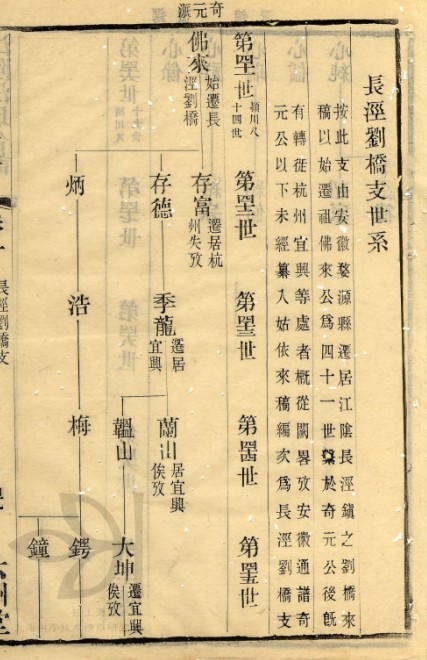 奇元派
長涇劉橋支世系
按此支由安徽婺源縣遷居江陰長涇鎮之劉橋來
稿以始遷祖佛來公爲四十一世纂於奇元公後旣
有轉徙杭州宜興等處者槪從闕畧攷安徽通譜奇
元公以下未經纂入姑依來稿編次爲長涇劉橋支
第𦉭一世
潁川八
十四世
第𦉭二世
第𦉭三世
第𦉭四世
第𦉭五世
佛來
始遷長
涇劉橋
存富
遷居杭
州失攷
存德
季龍
遷居
宜興
蘭山
居宜興
俟攷
韞山
大坤
遷宜興
俟攷
炳
浩
梅
鍔
鐘
長涇劉橋支